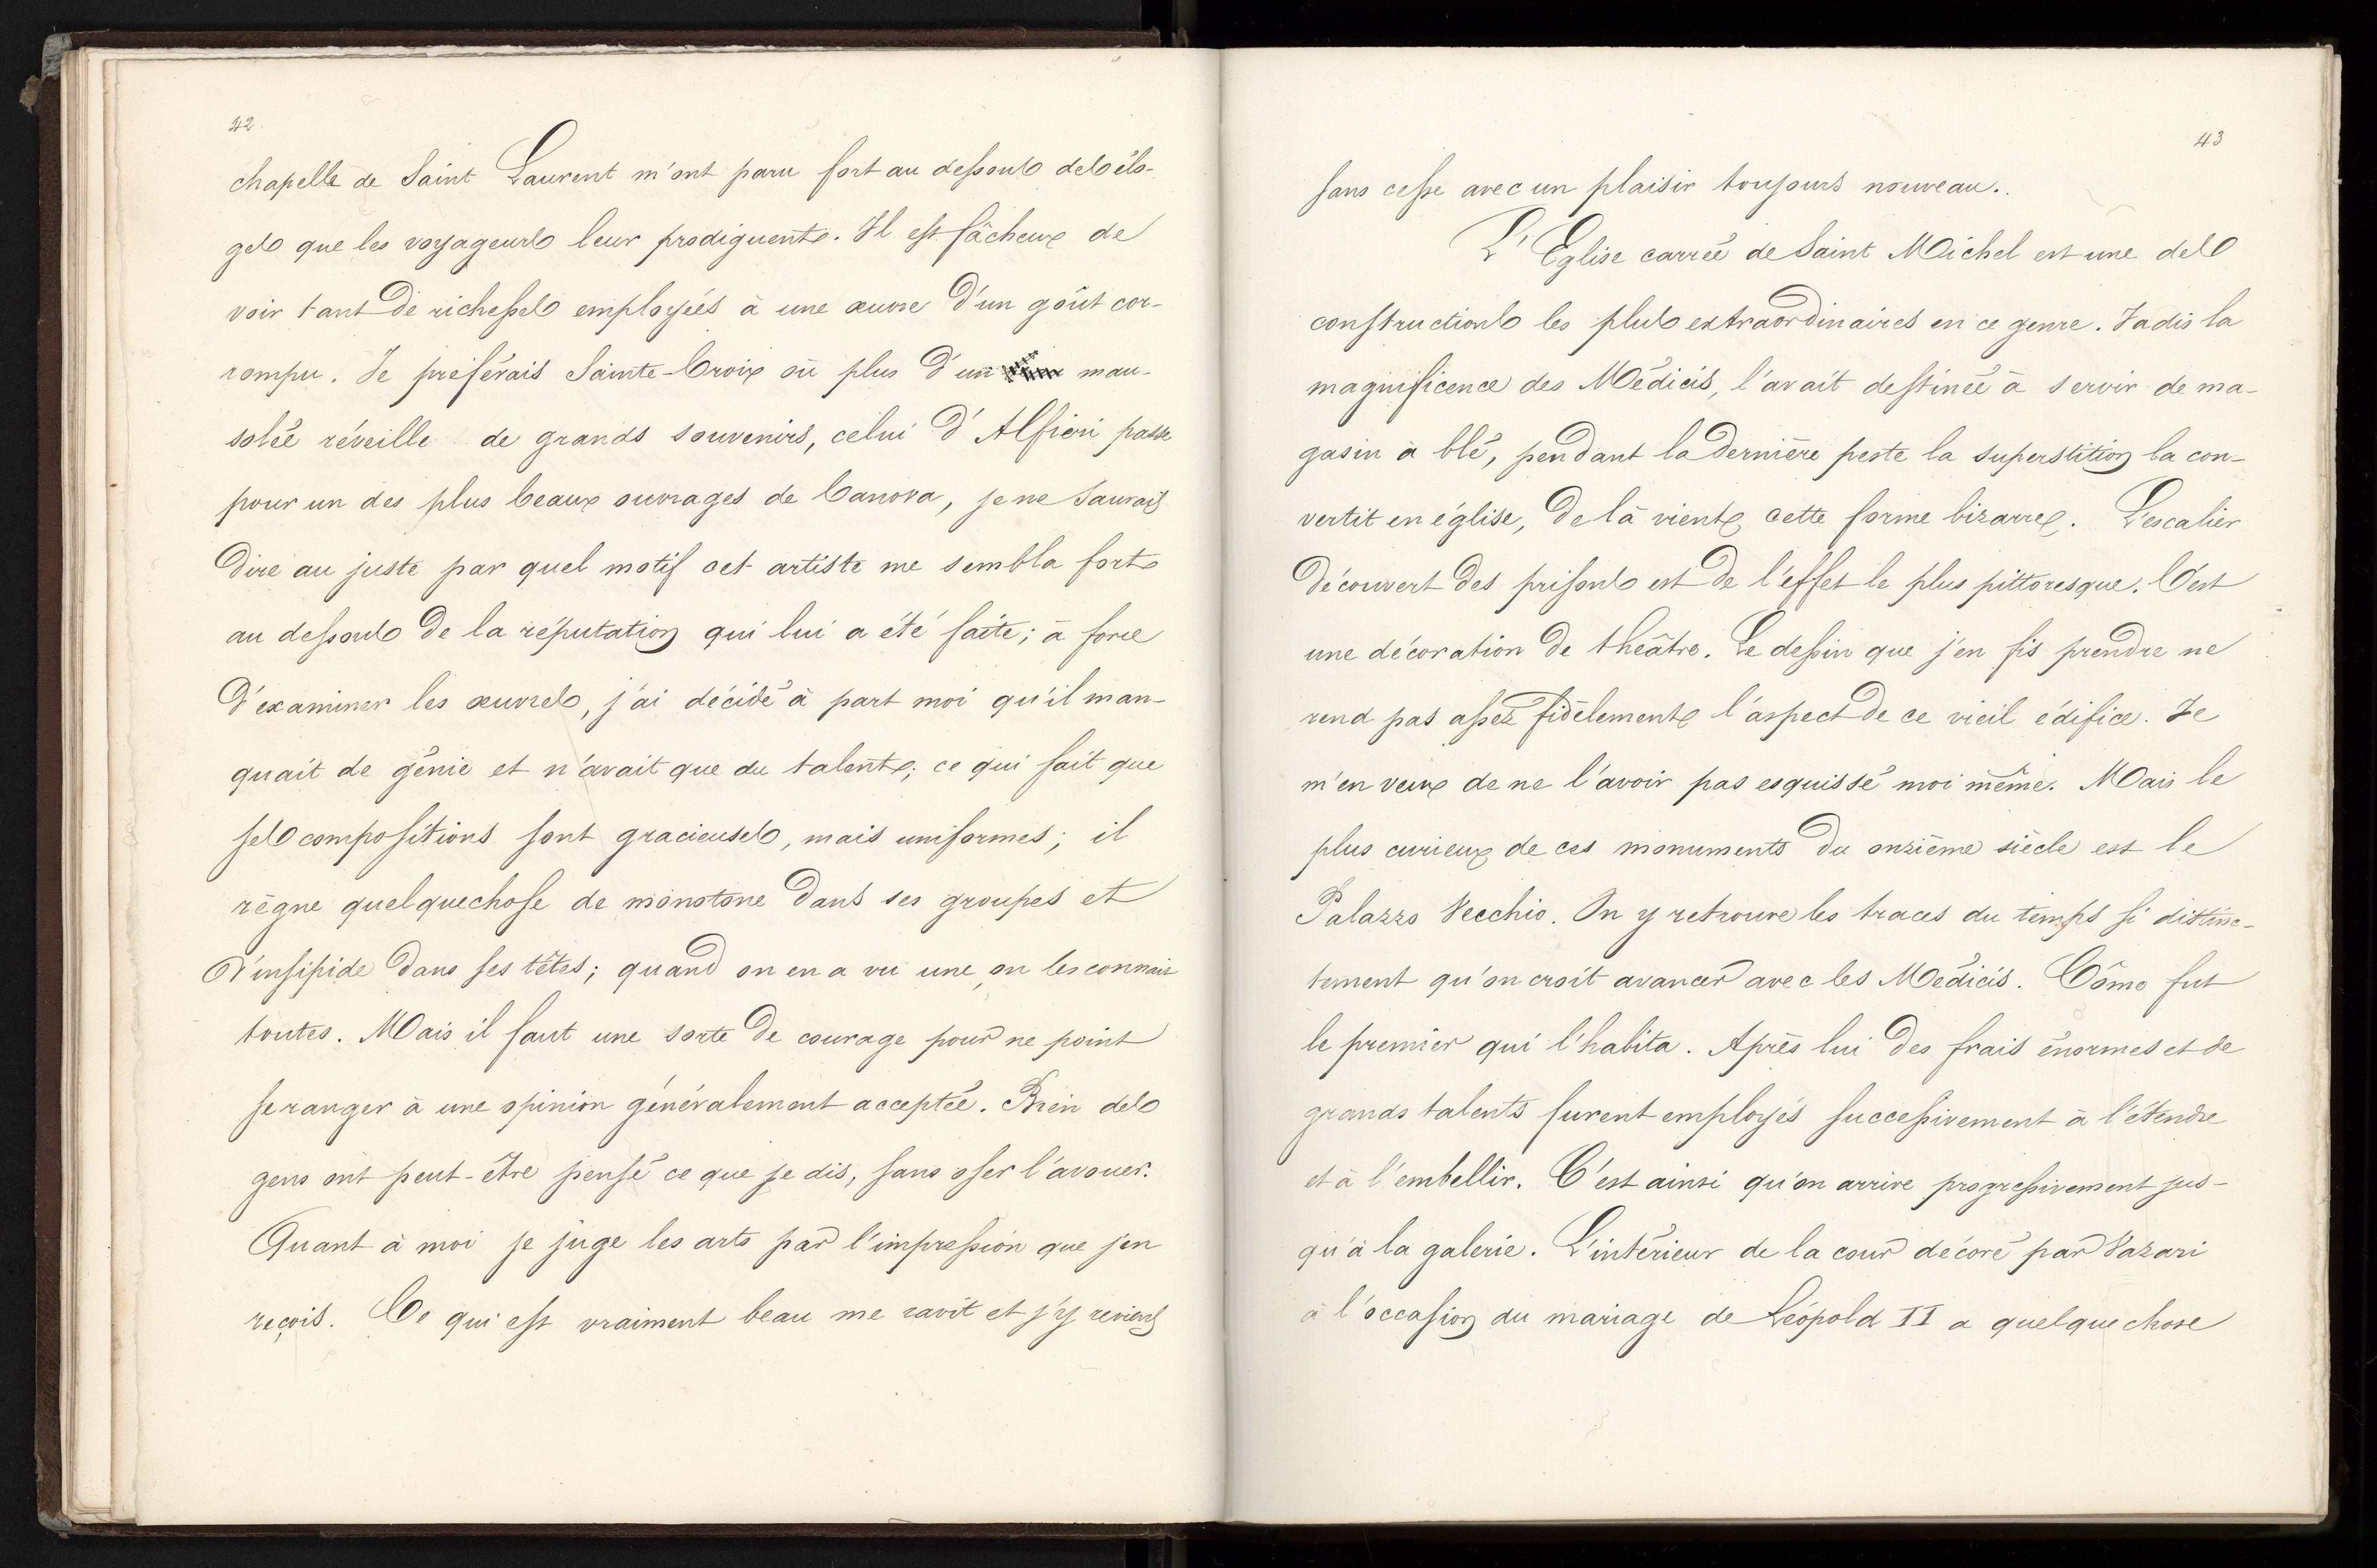 42
chapelle de Saint Laurent m'ont paru fort au dessous des élo-
ges que les voyageurs leur prodiguent. Il est fâcheux de
voir tant de richesses employées à une œuvre d'un goût cor-
rompu. Je préférais Sainte-Croix où plus d'un mau-
solée réveille de grands souvenirs, celui d'Alfieri passe
pour un des plus beaux ouvrages de Canova, je ne saurais
dire au juste par quel motif cet artiste me sembla fort
au dessous de la réputation qui lui a été faite; à force
d'examiner les œuvres, j'ai décidé à part moi qu'il man-
quait de génie et n'avait que du talent; ce qui fait que
ses compositions sont gracieuses, mais uniformes; il
règne quelquechose de monotone dans ses groupes et
d'insipide dans ses têtes; quand on en a vu une, on les connait
toutes. Mais il faut une sorte de courage pour ne point
se ranger à une opinion généralement acceptée. Bien des
gens ont peut-être pensé ce que je dis, sans oser l'avouer.
Quant à moi je juge les arts par l'impression que j'en
reçois. Ce qui est vraiment beau me ravit et j'y reviens
43
sans cesse avec un plaisir toujours nouveau.
L'Eglise carrée de Saint Michel est une des
constructions les plus extraordinaires en ce genre. Jadis la
magnificence des Médicis, l'avait destinée à servir de ma-
gasin à blé, pendant la dernière peste la superstition la con-
vertit en église, de là vient cette forme bizarre. L'escalier
découvert des prisons est de l'effet le plus pittoresque. C'est
une décoration de théâtre. Le dessin que j'en fis prendre ne
rend pas assez fidèlement l'aspect de ce vieil édifice. Je
m'en veux de ne l'avoir pas esquissé moi même. Mais le
plus curieux de ces monuments du onzième siècle est le
Palazzo Vecchio. On y retrouve les traces du temps si distinc-
tement qu'on croit avancer avec les Médicis. Côme fut
le premier qui l'habita. Après lui des frais énormes et de
grands talents furent employés successivement à l'étendre
et à l'embellir. C'est ainsi qu'on arrive progressivement jus-
qu'à la galerie. L'intérieur de la cour décoré par Vazari
à l'occasion du mariage de Léopold II a quelque chose